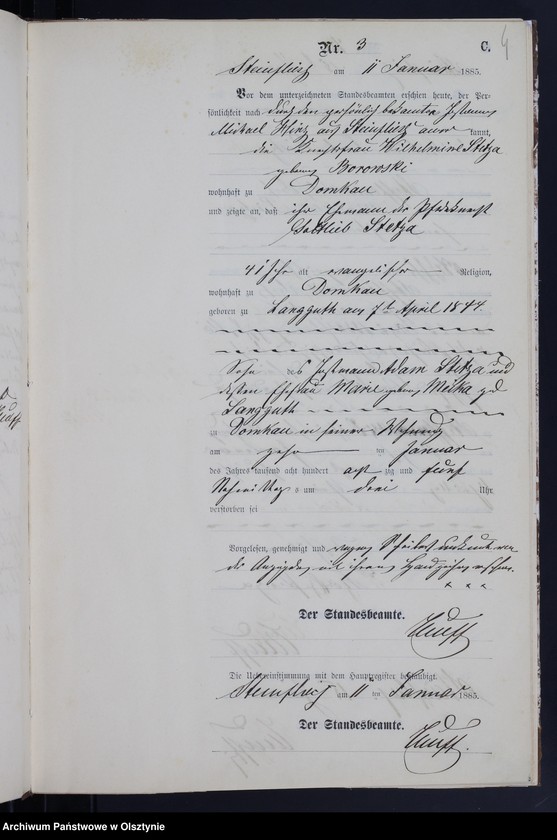 4
Nr. 3 C.
Steinfließ am 11 Januar 1885.
Vor dem unterzeichneten Standesbeamten erschien heute, der Per-
sönlichkeit nach durch den persönlich bekannten
Michael aus Steinfließ kannt,
die Wilhelmine Stetza
geborene Borowski
wohnhaft zu Domkau
und zeigte an, daß ihr Ehemann der Pferdeknecht
Gottlieb Stetza
41 Jahr alt evangelischer Religion,
wohnhaft zu Domkau
geboren zu Langguth am 7t April 1844.
Sohn des Adam Stetza und
dessen Ehefrau Marie geborene zu
Langguth
zu Domkau in seiner Wohnung
am zehn ten Januar
des Jahres tausend acht hundert acht zig und fünf
Nachmittags um drei Uhr
verstorben sei
Vorgelesen, genehmigt und wegen
der mit ihrem Handzeichen versehen.
× × ×
Der Standesbeamte.
Die Uebereinstimmung mit dem Hauptregister beglaubigt.
Steinfließ am 11 ten Januar 1885.
Der Standesbeamte.
Archiwum Państwowe w Olsztynie